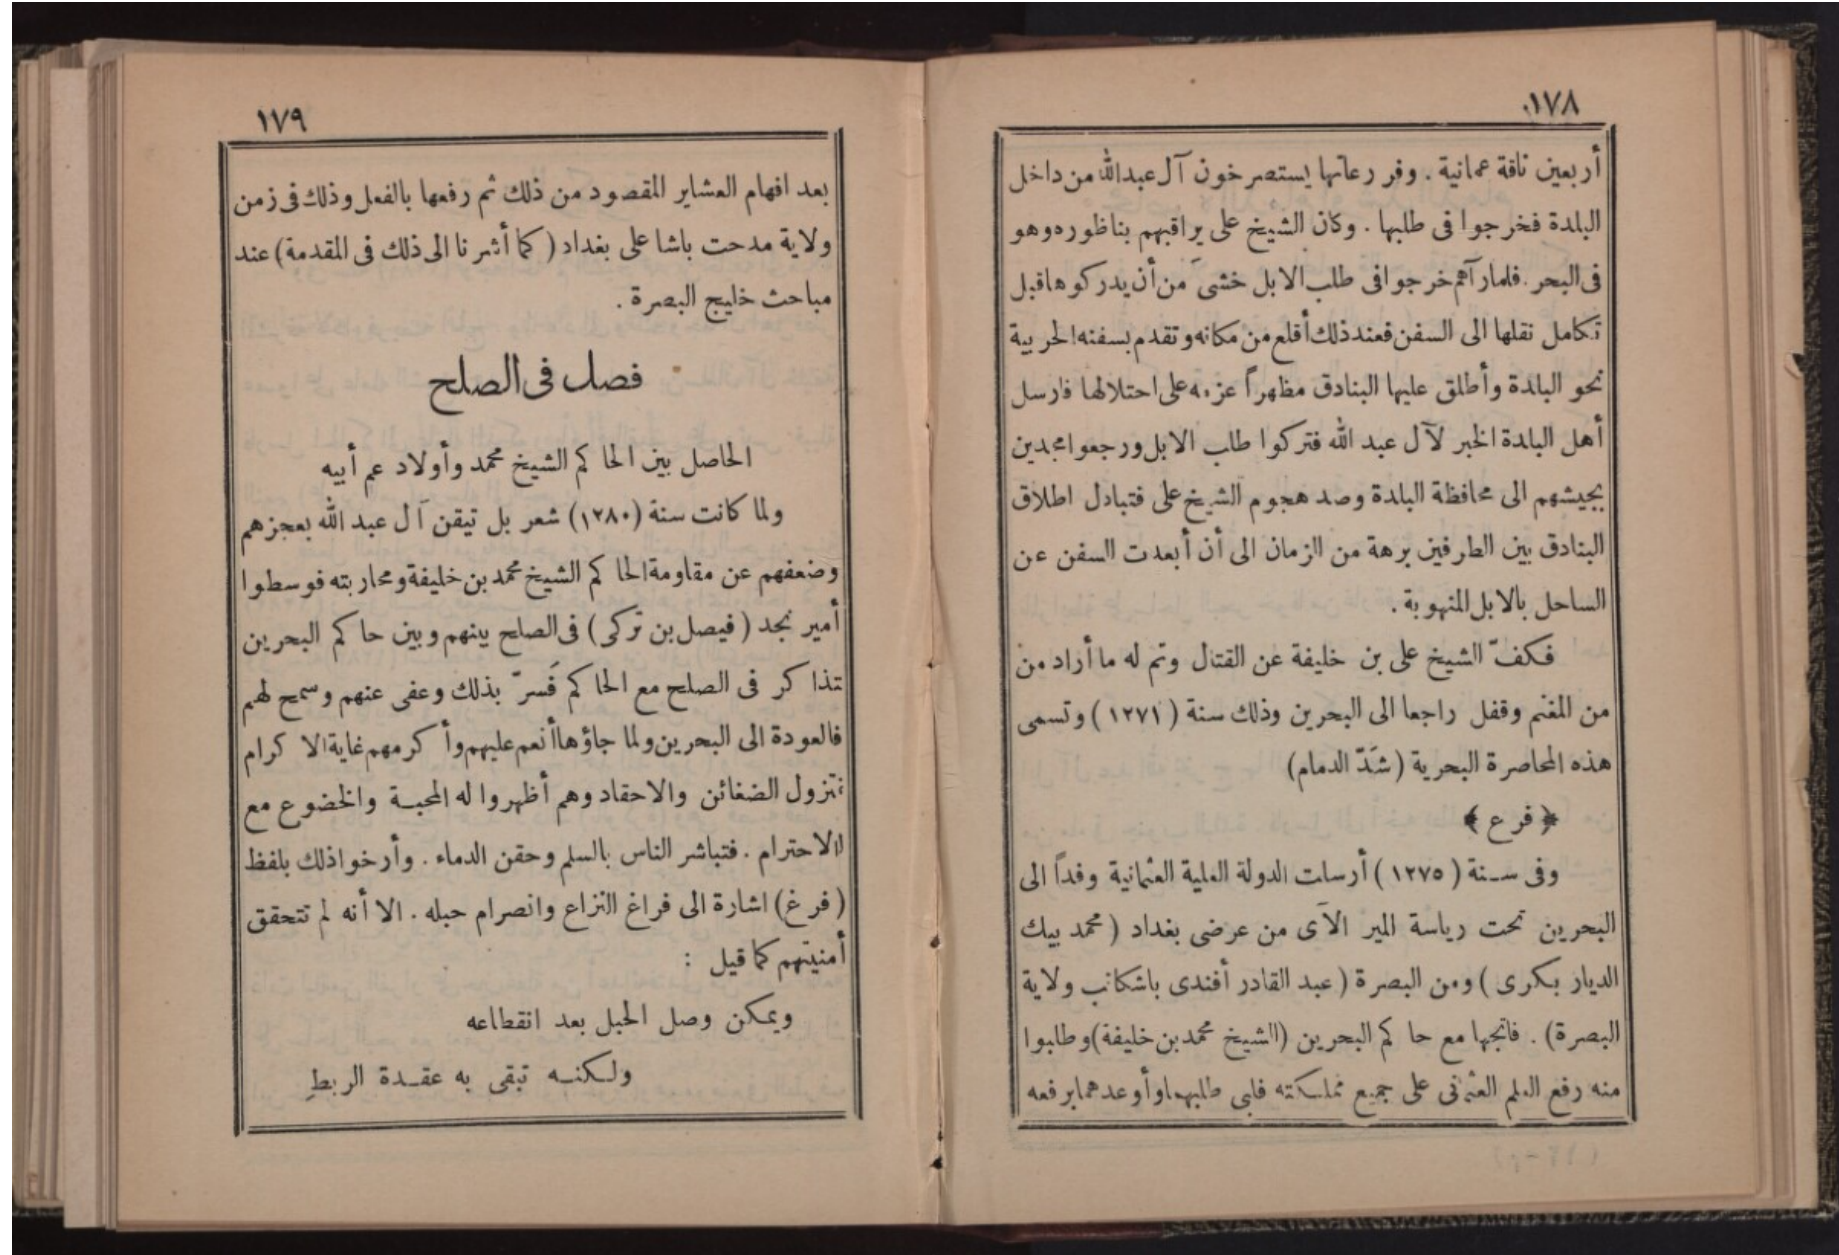 ١٧٨
أربعين ناقة عمانية . وفر رعاتها يستصرخون آل عبدالله من داخل
البلدة فخرجوا فى طلبها . وكان الشيخ على يراقبهم بناظوره وهو
فى البحر . فلما رآهم خرجوا فى طلب الابل خشى من أن يدركوها قبل
تكامل نقلها الى السفن فعند ذلك أقلع من مكانه وتقدم بسفنه الحربية
نحو البلدة وأطلق عليها البنادق مظهراً عزمه على احتلالها فارسل
أهل البلدة الخبر لآل عبد الله فتركوا طلب الابل ورجعوا مجدين
بجيشهم الى محافظة البلدة وصد هجوم الشيخ على فتبادل اطلاق
البنادق بين الطرفين برهة من الزمان الى أن أبعدت السفن عن
الساحل بالابل المنهوبة .
فكفّ الشيخ على بن خليفة عن القتال وتم له ما أراد من
من المغنم وقفل راجعا الى البحرين وذلك سنة ( ١٢٧١ ) وتسمى
هذه المحاصرة البحرية ( شَدّ الدمام)
﴿ فرع ﴾
وفى سنة ( ١٢٧٥ ) أرسلت الدولة العلية العثمانية وفداً الى
البحرين تحت رياسة المير الآى من عرضى بغداد ( محمد بيك
الديار بكرى ) ومن البصرة ( عبد القادر أفندى باشكاتب ولاية
البصرة) . فاتجها مع حاكم البحرين (الشيخ محمد بن خليفة) وطلبوا
منه رفع العلم العثمانى على جميع مملكته فلبى طلبهما وأوعدهما برفعه
١٧٩
بعد افهام العشاير المقصود من ذلك ثم رفعها بالفعل وذلك فى زمن
ولاية مدحت باشا على بغداد ( كما أشرنا الى ذلك فى المقدمة ) عند
مباحث خليج البصرة .
فصل فى الصلح
الحاصل بين الحاكم الشيخ محمد وأولاد عم أبيه
ولما كانت سنة (١٢٨٠) شعر بل تيقن آل عبد الله بعجزهم
وضعفهم عن مقاومة الحاكم الشيخ محمد بن خليفة ومحاربته فوسطوا
أمير نجد ( فيصل بن تركى ) فى الصلح بينهم وبين حاكم البحرين
فتذاكر فى الصلح مع الحاكم فَسرّ بذلك وعفى عنهم وسمح لهم
فالعودة الى البحرين ولما جاؤها أنعم عليهم وأكرمهم غاية الاكرام
لتزول الضغائن والاحقاد وهم أظهروا له المحبة والخضوع مع
الاحترام . فتباشر الناس بالسلم وحقن الدماء . وأرخوا ذلك بلفظ
( فرغ ) اشارة الى فراغ النزاع وانصرام حبله . الا أنه لم تتحقق
أمنيتهم كما قيل :
ويمكن وصل الحبل بعد انقطاعه
ولكنه تبقى به عقدة الربطِ